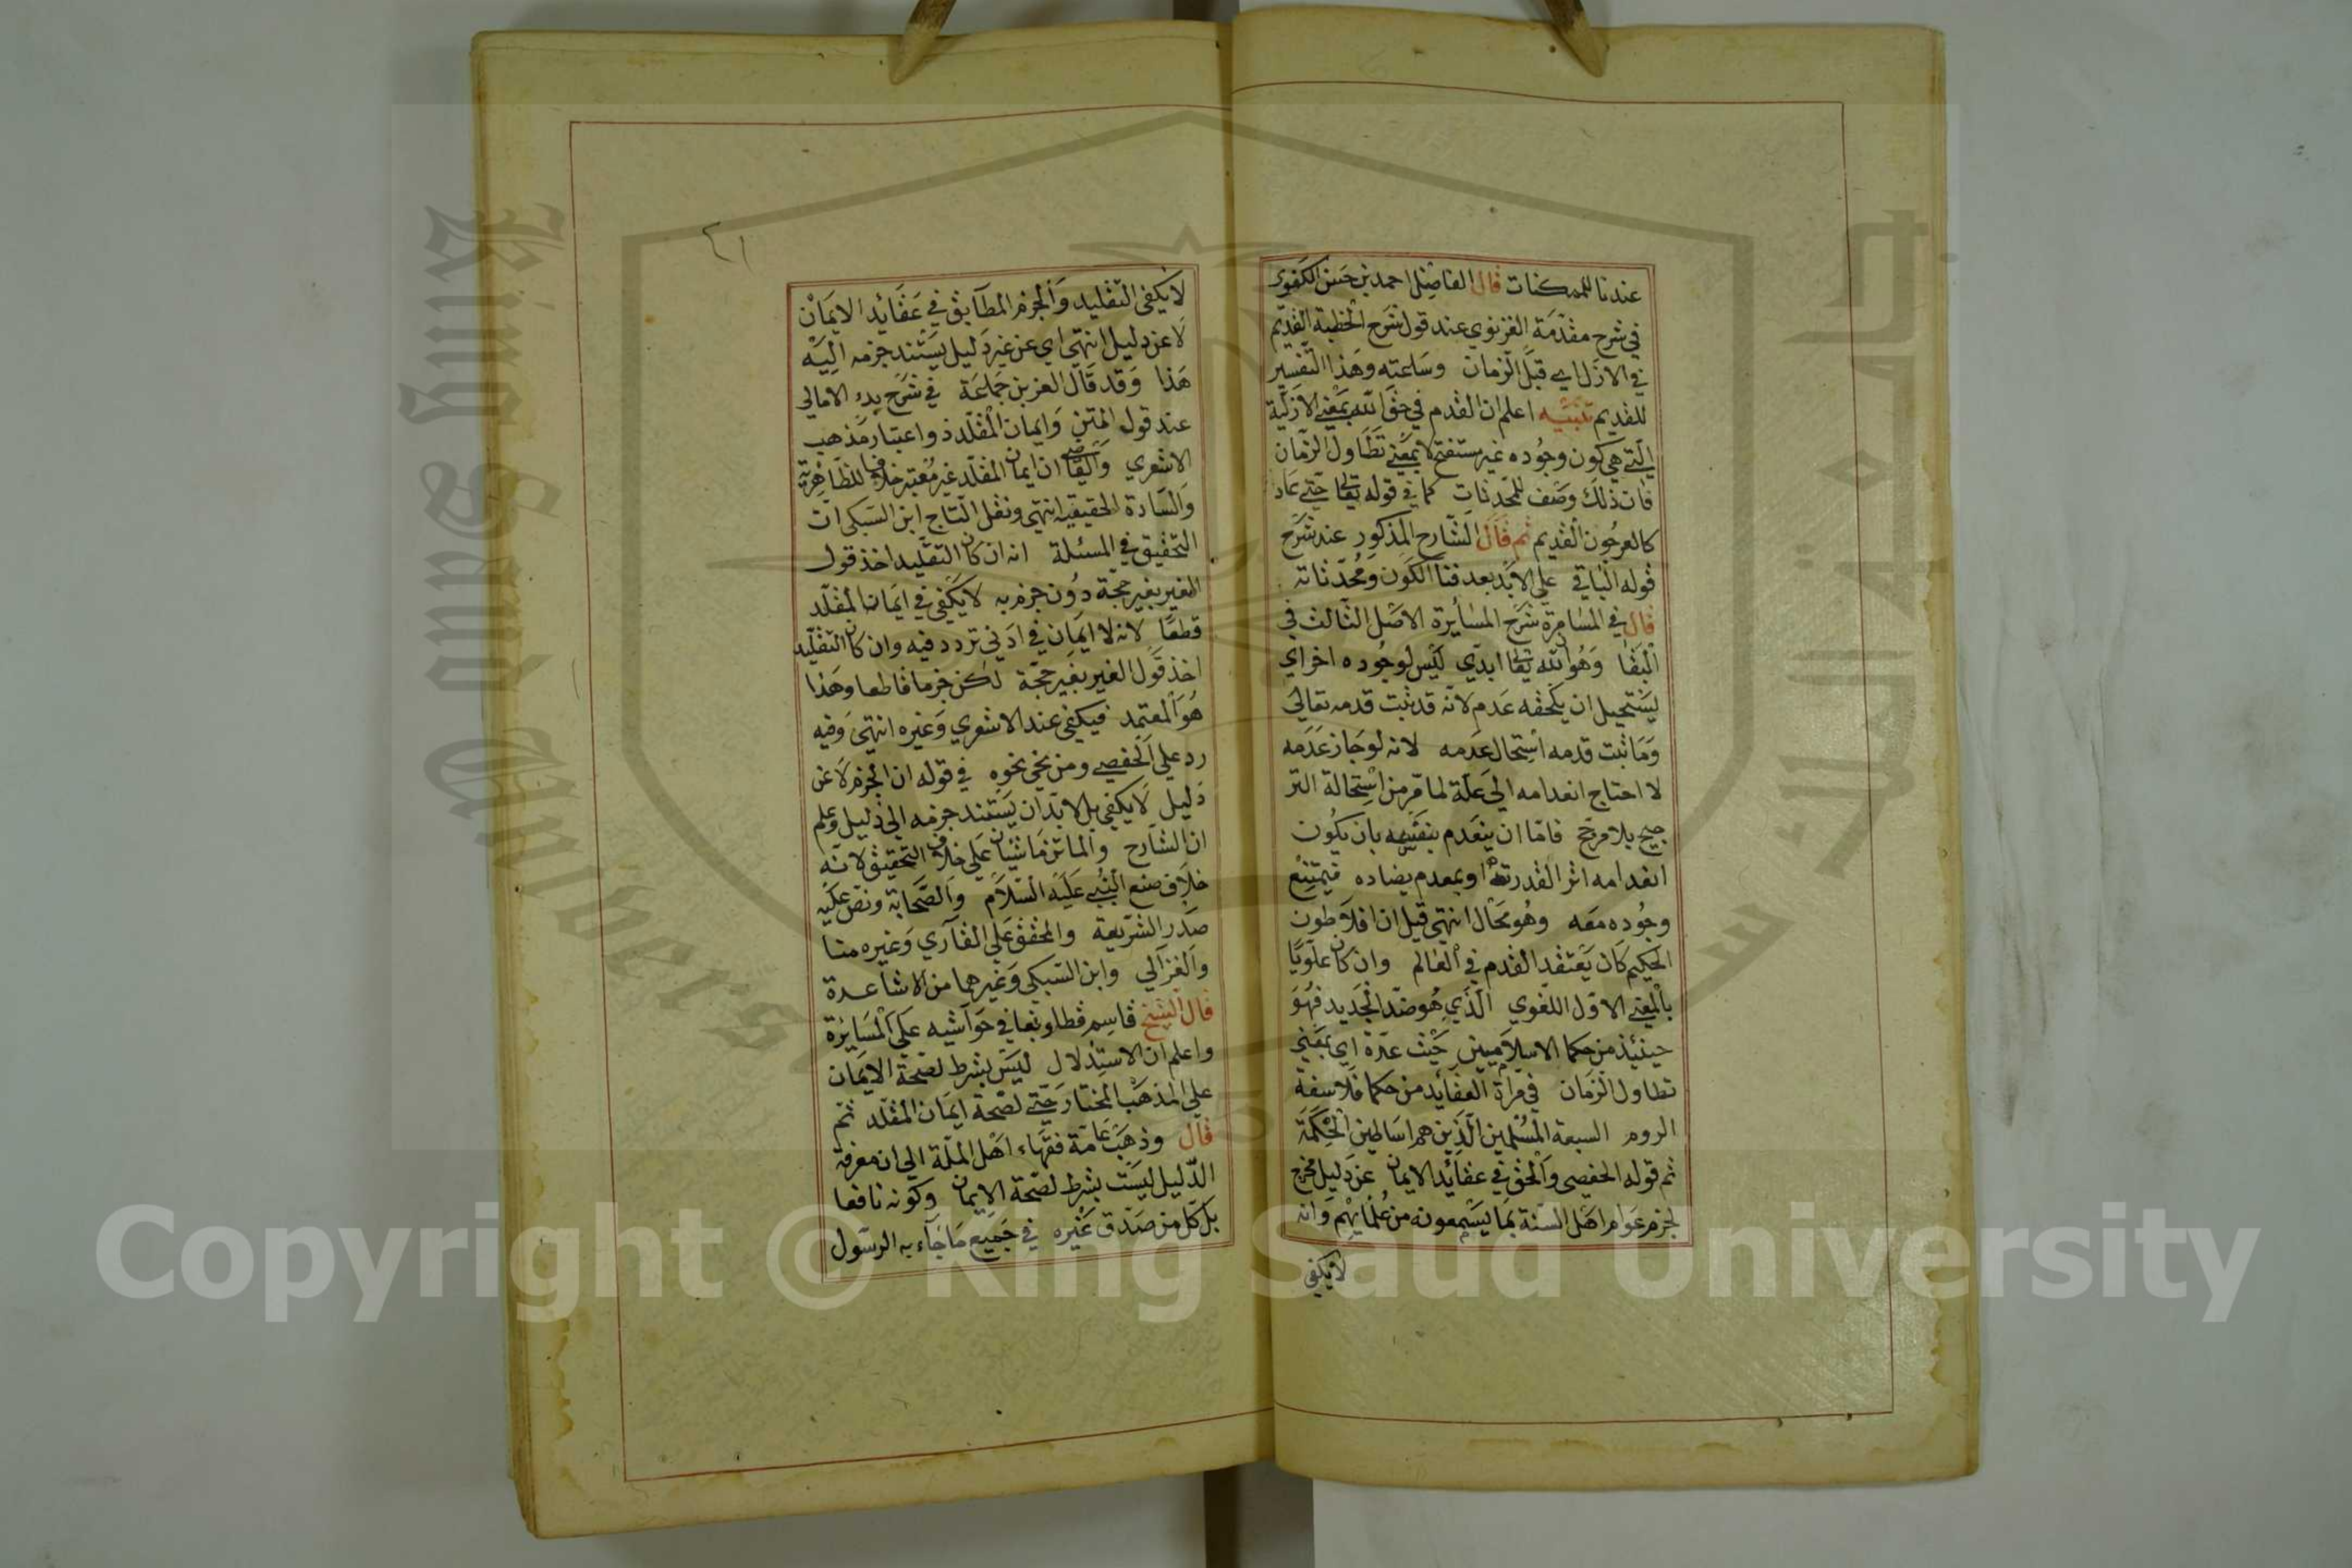 عندنا للممكنات قال الفاضل احمد بن حسن الكفوى
في شرح مقدمة الغزنوي عند قول شرح الخطبة القديم
في الازل اي قبل الزمان وساعته وهذا التفسير
للقديم تنبيه اعلم ان القدم في حق الله بمعنى الازلية
التي هي كون وجوده غير مستفتح لا بمعنى تطاول الزمان
فان ذلك وصف للمحدثات كما في قوله تعالى حتى عاد
كالعرجون القديم ثم قال الشارح المذكور عند شرح
قوله الباقي علي الابد بعد فنا الكون ومحدثاته
قال في المسامرة شرح المسايرة الاصل الثالث في
البقا وهو الله تعالى ابدي ليس لوجوده اخر اي
يستحيل ان يلحقه عدم لانه قد ثبت قدمه تعالى
وما ثبت قدمه استحال عدمه لانه لو جاز عدمه
لا احتاج انعدامه الي علة لما مر من استحالة التر
جيح بلا مرجح فاما ان ينعدم بنفسه بان يكون
انعدامه اثر القدرته او بمعدم يضاده فيمتنع
وجوده معه وهو محال انتهى قيل ان افلاطون
الحكيم كان يعتقد القدم في العالم وان كان علويا
بالمعنى الاول اللغوي الذي هو ضد الجديد فهو
حينئذ من حكما الاسلاميين حيث عده اي بمعنى
تطاول الزمان في مرآة العقايد من حكما فلاسفة
الروم السبعة المسلمين الذين هم اساطين الحكمة
ثم قوله الحفصى والحق في عقائد الايمان عن دليل مخرج
لجزم عوام اهل السنة بما يسمعونه من علمائهم وانه
لا يكفي
٢١
لا يكفي التقليد والجزم المطابق في عقائد الايمان
لا عن دليل انتهى اي عن غير دليل يستند جزمه اليه
هذا وقد قال العز بن جماعة في شرح بدء الامالي
عند قول المتن وايمان المقلد ذو اعتبار مذهب
الاشعري والقاضي ان ايمان المقلد غير معتبر خلافا للظاهرية
والسادة الحقيقيه انتهى ونقل التاج ابن السبكى ان
التحقيق في المسئلة انه ان كان التقليد اخذ قول
الغير بغير حجة دون جزم به لا يكفي في ايمان المقلد
قطعا لانه لا ايمان في ادنى تردد فيه وان كان التقليد
اخذ قول الغير بغير حجة لكن جزما قاطعا وهذا
هو المعتمد فيكفي عند الاشعري وغيره انتهى وفيه
رد علي الحفصى ومن نحى نحوه في قوله ان الجزم لا عن
دليل لا يكفي بل لا بد ان يستند جزمه الي دليل وعلم
ان الشارح والماتن ماشيان علي خلاف التحقيق لانه
خلاف صنع النبي عليه السلام والصحابة ونص عليه
صدر الشريعة والمحقق علي القاري وغيره منا
والغزالي وابن السبكى وغيرهما من الاشاعدة
قال الشيخ قاسم قطلوبغا في حواشيه على المسايرة
واعلم ان الاستدلال ليس بشرط لصحة الايمان
علي المذهب المختار حتى لصحة ايمان المقلد ثم
قال وذهب عامة فقهاء اهل الملة الي ان معرفة
الدليل ليست بشرط لصحة الايمان وكونه نافعا
بل كل من صدق غيره في جميع ما جآء به الرسول
King Saud University
Copyright © King Saud University